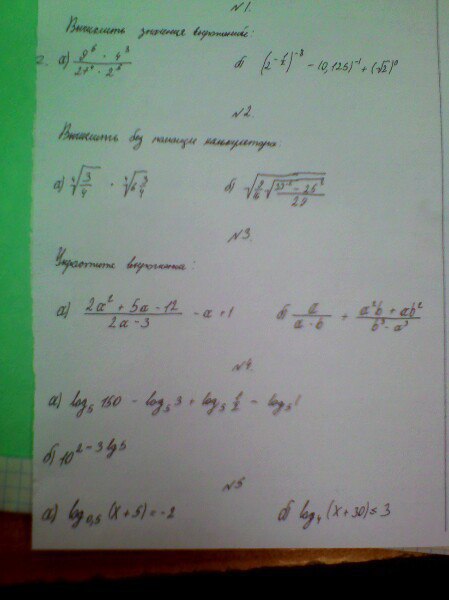 №1.
Вычислить значения выражений:
а) 9⁶ · 4³ / 27⁴ · 2⁵ б) (2^(-1/2))^(-8) − (0,125)^(-1) + (√2)⁰
№2.
Вычислить без помощи калькулятора
а) ⁴√(3/4) · ⁴√(6 3/4) б)
№3.
Упростите выражения:
а) (2a² + 5a − 12) / (2a − 3) − a + 1 б) a / (a − b) + (a²b + ab²) / (b³ − a³)
№4.
а) log₅ 150 − log₅ 3 + log₅ 1/2 − log₅
б) 10^(2 − 3 lg 5)
№5
а) log₀,₅ (x + 5) = −2 б) log₄ (x + 30) ≤ 3